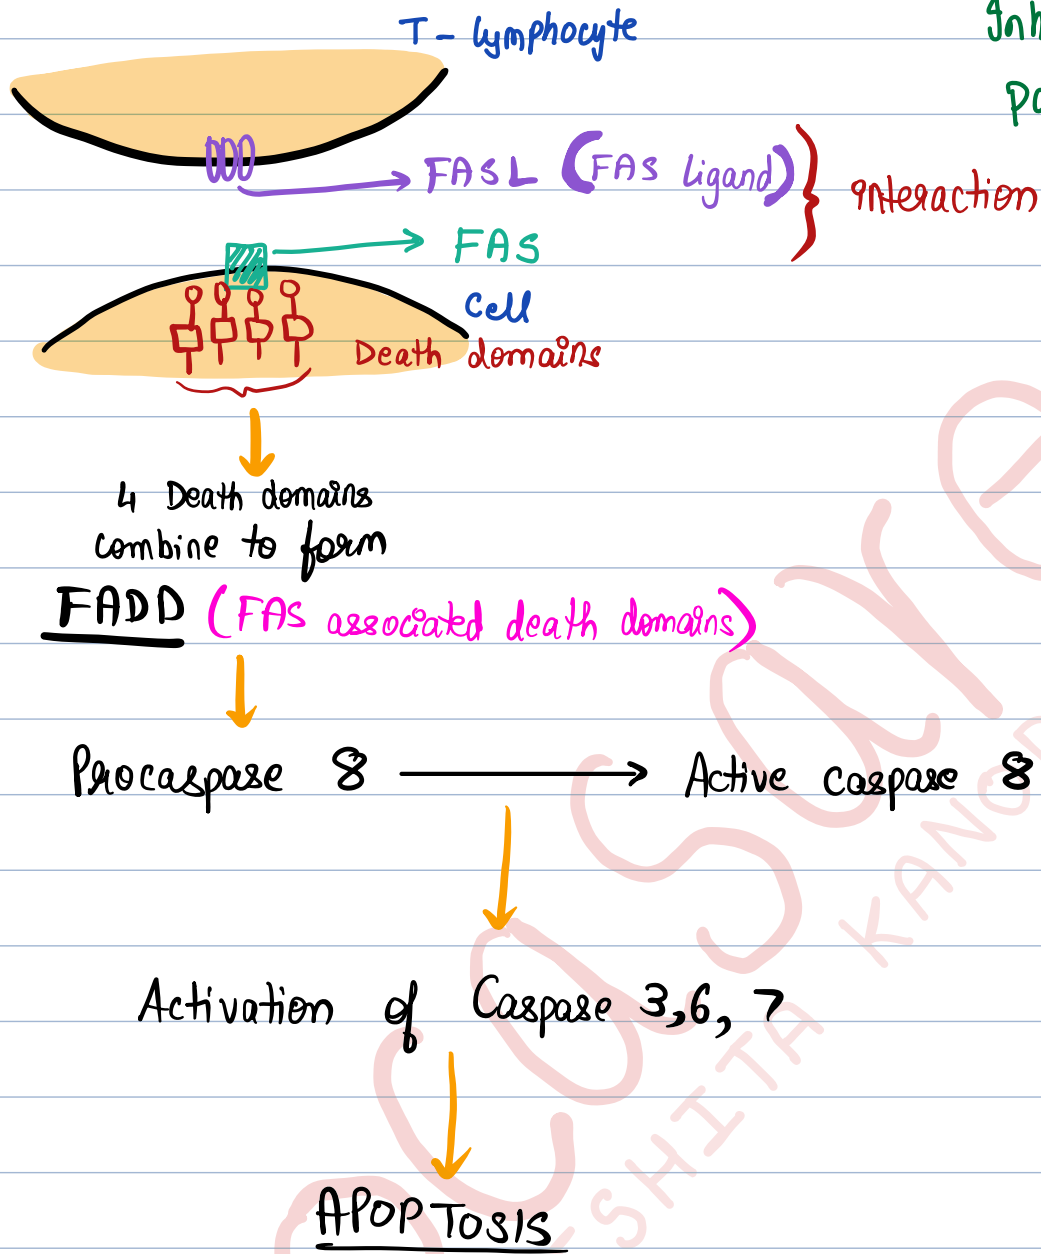 T - lymphocyte
FASL (FAS ligand)
interaction
FAS
Cell
Death domains
4 Death domains
combine to form
FADD (FAS associated death domains)
Procaspase 8 → Active caspase 8
Activation of Caspase 3,6,7
APOPTOSIS